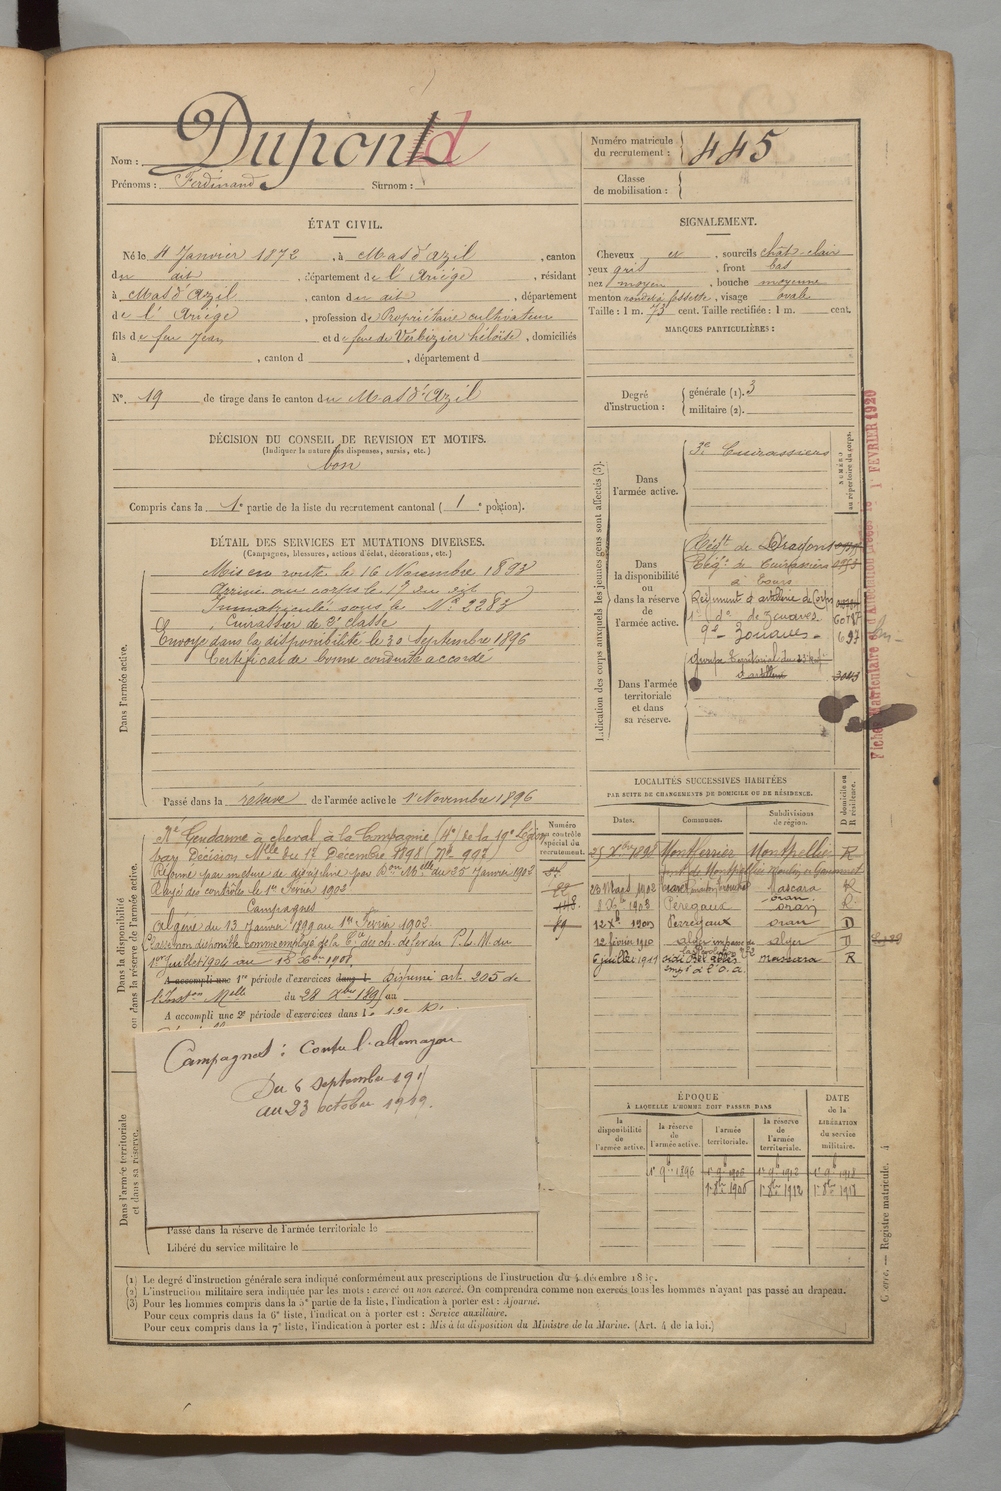 Nom : Dupond
Prénoms : Ferdinand Surnom :
Numéro matricule du recrutement : 445
Classe de mobilisation :
ÉTAT CIVIL.
Né le 4 Janvier 1872, à Mas d'azil, canton
du dit, département de l'Ariège, résidant
à Mas d'azil, canton du dit, département
de l'Ariège, profession de Propriétaire cultivateur
fils de feu Jean et de feue de Verbizier Héloïse, domiciliés
à , canton d , département d
N°. 19 de tirage dans le canton du Mas d'Azil
SIGNALEMENT.
Cheveux et , sourcils chât-clair
yeux gris , front bas
nez moyen , bouche moyenne
menton rond à fossette, visage ovale
Taille : 1 m. 73 cent. Taille rectifiée : 1 m. cent.
MARQUES PARTICULIÈRES :
Degré d'instruction : générale (1). 3
militaire (2).
DÉCISION DU CONSEIL DE REVISION ET MOTIFS.
(Indiquer la nature des dispenses, sursis, etc.)
bon
Compris dans la 1e partie de la liste du recrutement cantonal ( 1 e portion).
DÉTAIL DES SERVICES ET MUTATIONS DIVERSES.
(Campagnes, blessures, actions d'éclat, décorations, etc.)
Dans l'armée active.
Mis en route le 16 Novembre 1893
Arrivé au corps le 17 du dit
Immatriculé sous le N° 2283
Cuirassier de 2e classe
Envoyé dans la disponibilité le 30 Septembre 1896
Certificat de bonne conduite accordé
Passé dans la réserve de l'armée active le 1er Novembre 1896
Indication des corps auxquels les jeunes gens sont affectés (3).
NUMÉRO au répertoire du corps.
Dans l'armée active.
3e Cuirassiers
Dans la disponibilité ou dans la réserve de l'armée active.
Régt de Dragons
Régt de Cuirassiers
à Tours
Régiment d'artillerie de Corps
1er do de Zouaves
2e Zouaves 697
Dans l'armée territoriale et dans sa réserve.
groupe territorial du
d'artillerie
Fiches Matriculaire et d'Affectation 1er FEVRIER 1920
LOCALITÉS SUCCESSIVES HABITÉES
PAR SUITE DE CHANGEMENTS DE DOMICILE OU DE RÉSIDENCE.
Dates. Communes. Subdivisions de région. D domicile ou R résidence.
25 Xbre 1898 Montferrier Montpellier R
23 Mars 1902 Mascara R
8 Xbre 1908 Perégaux oran R
12 Xbre 1909 Perregaux oran D
12 février 1910 alger alger D
6 juillet 1911 sidi Bel abbès mascara R
Dans la disponibilité ou dans la réserve de l'armée active.
Numéro au contrôle spécial du recrutement.
Né Gendarme à cheval à la Compagnie de la 19e Légion
par Décision Mlle du 17 Décembre 1898 (N° 992)
Réformé par mesure de discipline par Don Mlle du 25 Janvier 1902
Rayé des contrôles le 1er Février 1902
Campagnes
Algérie du 13 Janvier 1899 au 1er Février 1902
Classé non disponible comme employé de la Cie des ch. de fer du P.L.M. du
1er Juillet 1904 au 15 Xbre 1908
A accompli une 1re période d'exercices dans l. Dispensé art. 205 de
l'Inston Mlle du 28 Xbre 1895 au
A accompli une 2e période d'exercices dans l
Campagnes : Contre l'allemagne
Du 6 septembre 191
au 23 octobre 1919.
Dans l'armée territoriale et dans sa réserve.
Passé dans la réserve de l'armée territoriale le
Libéré du service militaire le
ÉPOQUE
À LAQUELLE L'HOMME DOIT PASSER DANS
la disponibilité de l'armée active. la réserve de l'armée active. l'armée territoriale. la réserve de l'armée territoriale. DATE de la LIBÉRATION du service militaire.
1er 9b 1896 1er 9b 1906 1er 9b 1912 1er 9b 1918
1er 8bre 1906 1er 8bre 1912 1er 8bre 1918
(1) Le degré d'instruction générale sera indiqué conformément aux prescriptions de l'instruction du 4 décembre 18
(2) L'instruction militaire sera indiquée par les mots : exercé ou non exercé. On comprendra comme non exercés tous les hommes n'ayant pas passé au drapeau.
(3) Pour les hommes compris dans la 5e partie de la liste, l'indication à porter est : Ajourné.
Pour ceux compris dans la 6e liste, l'indication à porter est : Service auxiliaire.
Pour ceux compris dans la 7e liste, l'indication à porter est : Mis à la disposition du Ministre de la Marine. (Art. 4 de la loi.)
— Registre matricule. 4